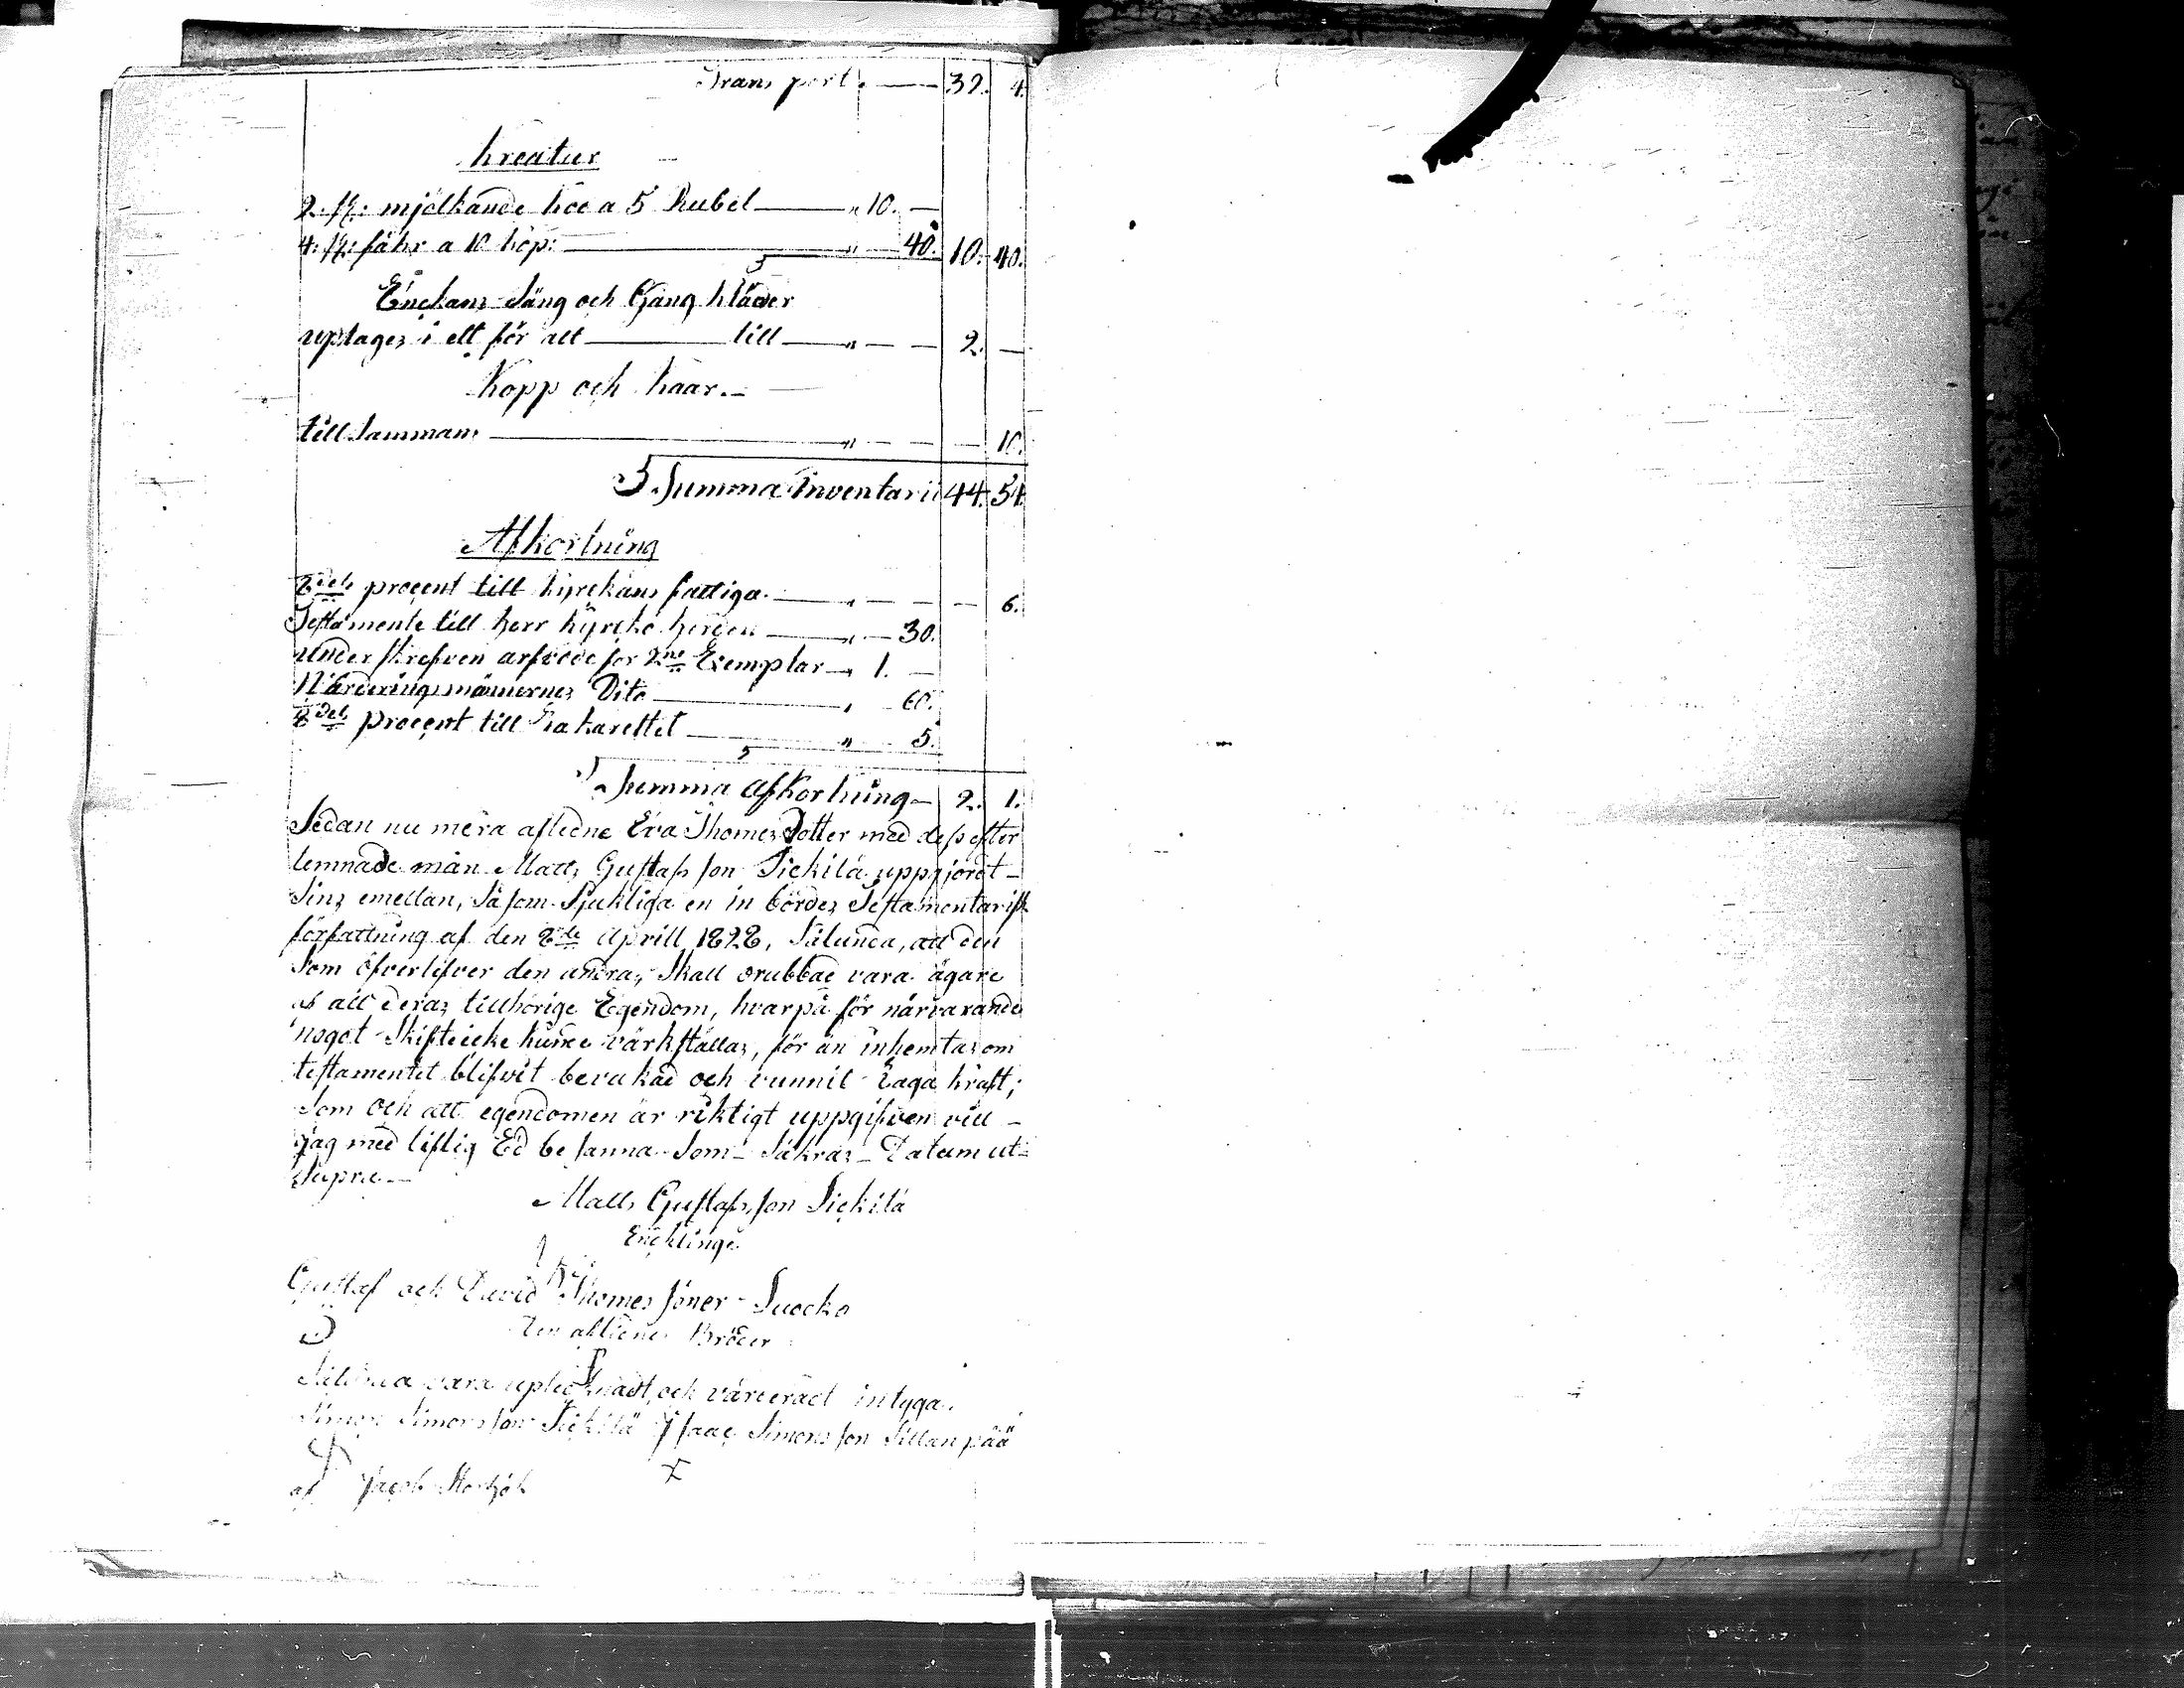 Transport. — 32. 4.
Kreatur
2. st: mjölkande koe a 5 Rubel — " 10. —
4. st: fåhr a 10 kop: — " — 40. 10. 40.
Enckans Säng och Gång kläder
uptages i ett för alt — till — " — — 2. —
Kopp och kaar. —
till Sammans — " — — — 10.
Summa Inventarii 44. 54.
Afkortning
8dels procent till kyrckans fattiga. — " — — — 6.
Testamente till herr kyrcko herden — " — 30.
under skrefven arfvode för 2ne Exemplar — " 1. —
Värderings männernes Dito — " 60.
8dels procent till Lazarettet — " 5.
Summa afkortning — 2. 1.
Sedan nu mera afledne Eva Thomes Dotter med dess efter
lemnade man Matts Gustafsson Sickilä uppgjordt
Sins emellan, Såsom Sjukliga en in bördes Testamentarisk
författning af den 8de Aprill 1828, Sålunda, att den
Som öfverlefver den andra, Skall orubbad vara ägare
af all deras tillhörige Egendom, hvarpå för närvarande
något Skifte icke kunne värkställas, för än inhemtas om
testamentet blifvit bevakad och vunnit Laga kraft;
Som och att egendomen är riktigt uppgifven vill
jag med liflig Ed besanna Som Säkras Datum ut
Supra. —
Matts Gustafsson Sickilä
Encklinge
Gustaf och David Thomes Söner Suocko
Den aflednes Bröder
vara upteknadt, och värderadt intyga.
Simon Simonsson Sickilä Isaac Simonsson Sillanpää
af Jacob